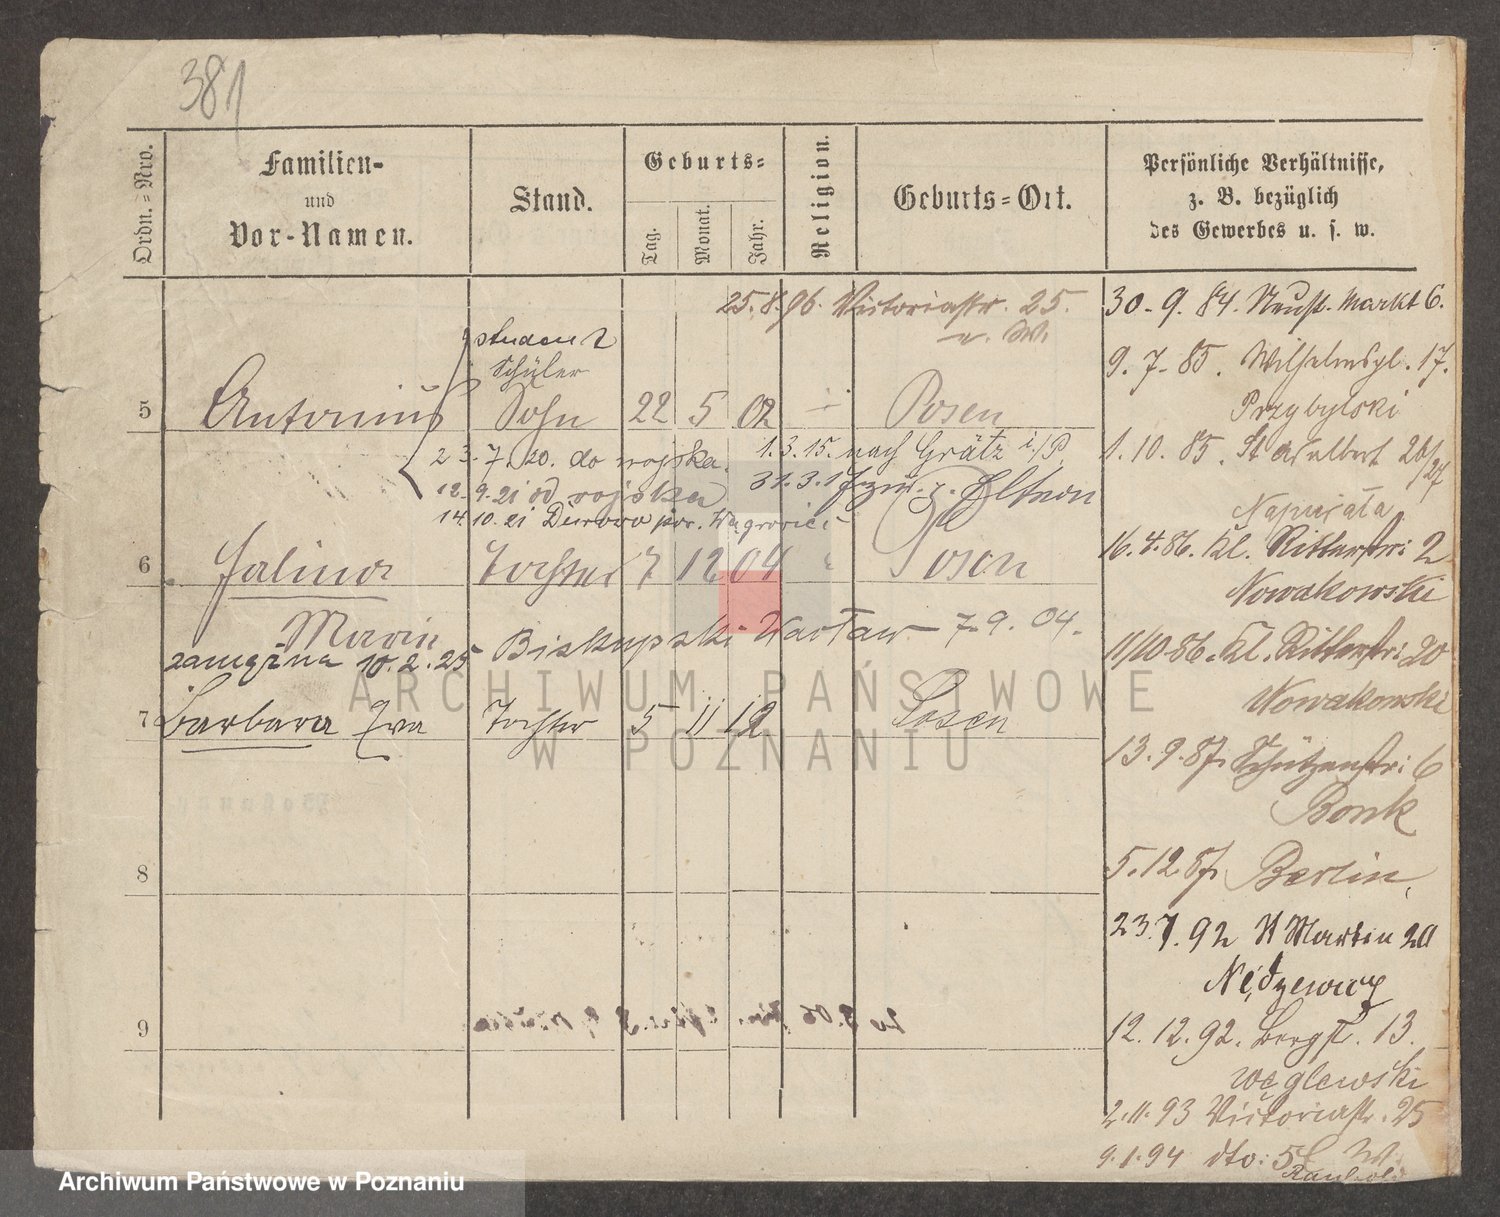 381
Ordn.=Nro.
Familien-
und
Vor-Namen.
Stand.
Geburts=
Tag.
Monat.
Jahr.
Religion.
Geburts=Ort.
Persönliche Verhältnisse,
z. B. bezüglich
des Gewerbes u. s. w.
25.8.96. Victoriastr. 25.
student
Schüler
5 Antonius Sohn 22 5 02 Posen
23.7.20. do wojska. 1.3.15. nach Grätz i/P.
12.9.21 od wojska 31.3.17 z. Eltern
14.10.21 pow. Wągrowiec
6 Halina Tochter 7 12 04 Posen
Maria
zamężna 10.2.25 Biskupski Wacław 7.9.04.
7 Barbara Ewa Tochter 5 11 12 Posen
8
9
30.9.84. Neust. Markt 6.
9.7.85. Wilhelmspl. 17.
Przybylski
1.10.85. St Adalbert 26/27
Napierała
16.4.86. Kl. Ritterstr: 2
Nowakowski
11/10.86. Kl. Ritterstr: 20
Nowakowski
13.9.87. Schützenstr: 6
Bonk
5.12.87. Berlin,
23.7.92 St Martin 20
12.12.92. Bergstr. 13.
Węglewski
2.11.93 Victoriastr. 25
9.1.94 dto:
ARCHIWUM PAŃSTWOWE
W POZNANIU
Archiwum Państwowe w Poznaniu